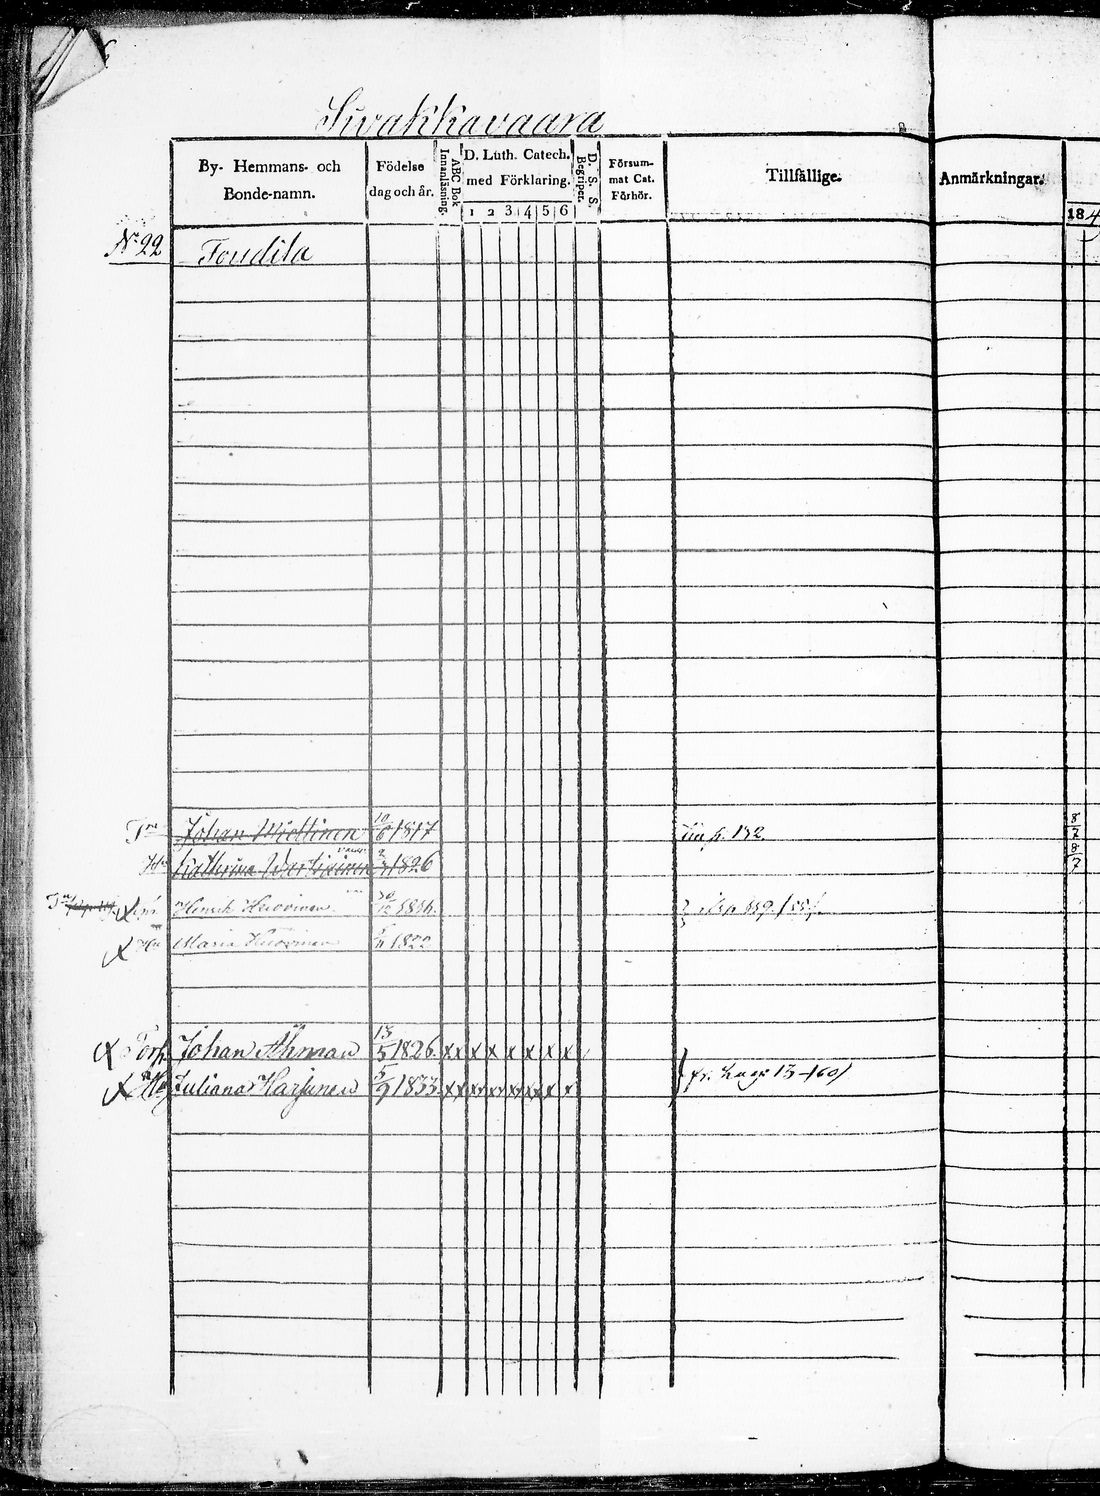 Sivakkavaara
By- Hemmans- och Bonde-namn.
Födelse dag och år.
ABC Bok Innanläsning.
D. Luth. Catech. med Förklaring.
1 2 3 4 5 6
D. S. S. Begriper.
Försum- mat Cat. Förhör.
Tillfällige.
Anmärkningar.
184
No 22 Jondila
Johan Miettinen 10/6 1817 p. 132 8/7
Kathrina Wartiainen 1826 8/7
Henrik 
Maria 1822
Torp Johan Åhman 13/5 1826 x x x x x x x x
Hu Juliana Harjunen 5/9 1833 x x x x x x x x fr. 13 -60